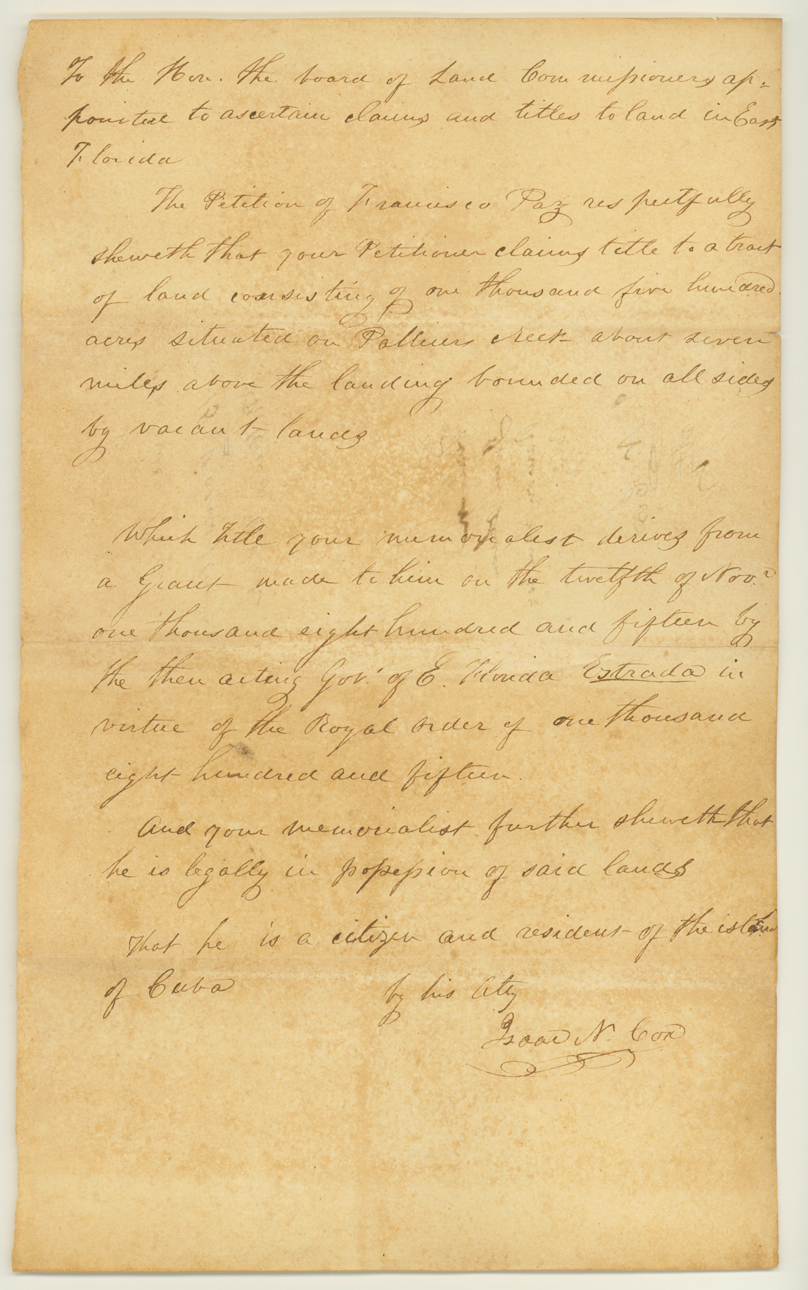 To the Hon. the board of Land Commissioners ap-
pointed to ascertain claims and titles to land in East
Florida
The Petition of Francisco Paz respectfully
sheweth that your Petitioner claims title to a tract
of land consisting of one thousand five hundred
acres situated on Pellicers creek about seven
miles above the landing bounded on all sides
by vacant lands
Which title your memorialist derives from
a Grant made to him on the twelfth of Novr
one thousand eight hundred and fifteen by
the then acting Govr of E. Florida Estrada in
virtue of the Royal order of one thousand
eight hundred and fifteen.
And your memorialist further sheweth that
he is legally in possession of said lands
That he is a citizen and resident of the island
of Cuba by his Atty
Isaac N. Cox